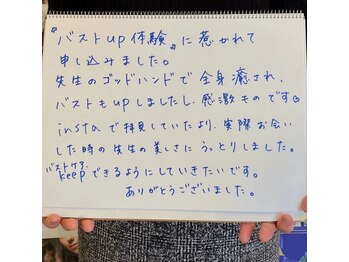 『バストup体験』に惹かれて
申し込みました。
先生のゴッドハンドで全身癒され、
バストもupしましたし、感激ものです♡
instaで拝見していたより、実際お会い
した時の先生の美しさにうっとりしました。
バストケア、
keepできるようにしていきたいです。
ありがとうございました。